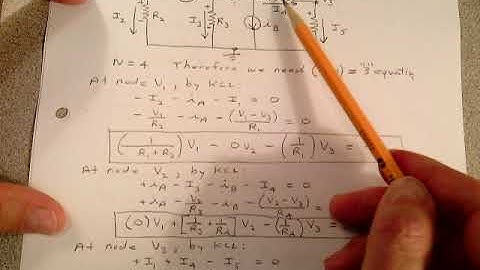 I₂ R₂ I₃ R₃ i_B I₅
N = 4 Therefore we need
At node V₁, by KCL:
- I₂ - i_A - I₁ = 0
- V₁/R₂ - i_A - (V₁-V₃)/R₁ = 0
(1/(R₁+R₂)) V₁ - 0V₂ - (1/R₁) V₃ =
At node V₂, by KCL:
+ i_A - I₃ - i_B - I₄ = 0
+ i_A - V₂/R₃ - i_B - (V₂-V₃)/R₄ = 0
(0) V₁ + [1/R₃ + 1/R₄] V₂ - (1/R₄) V₃ =
At node V₃, by KCL:
+ I₁ + I₄ - I₅ = 0